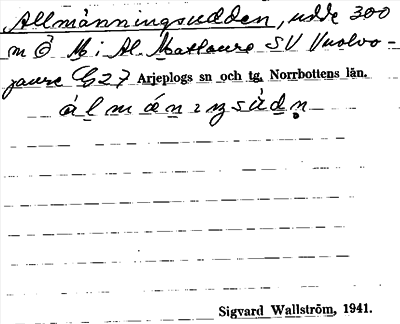 Allmänningsudden, udde 300
m Ö M; i Al. Mattaure SV Vuolvo-
jaure C 27 Arjeplogs sn och tg. Norrbottens län.
Sigvard Wallström, 1941.